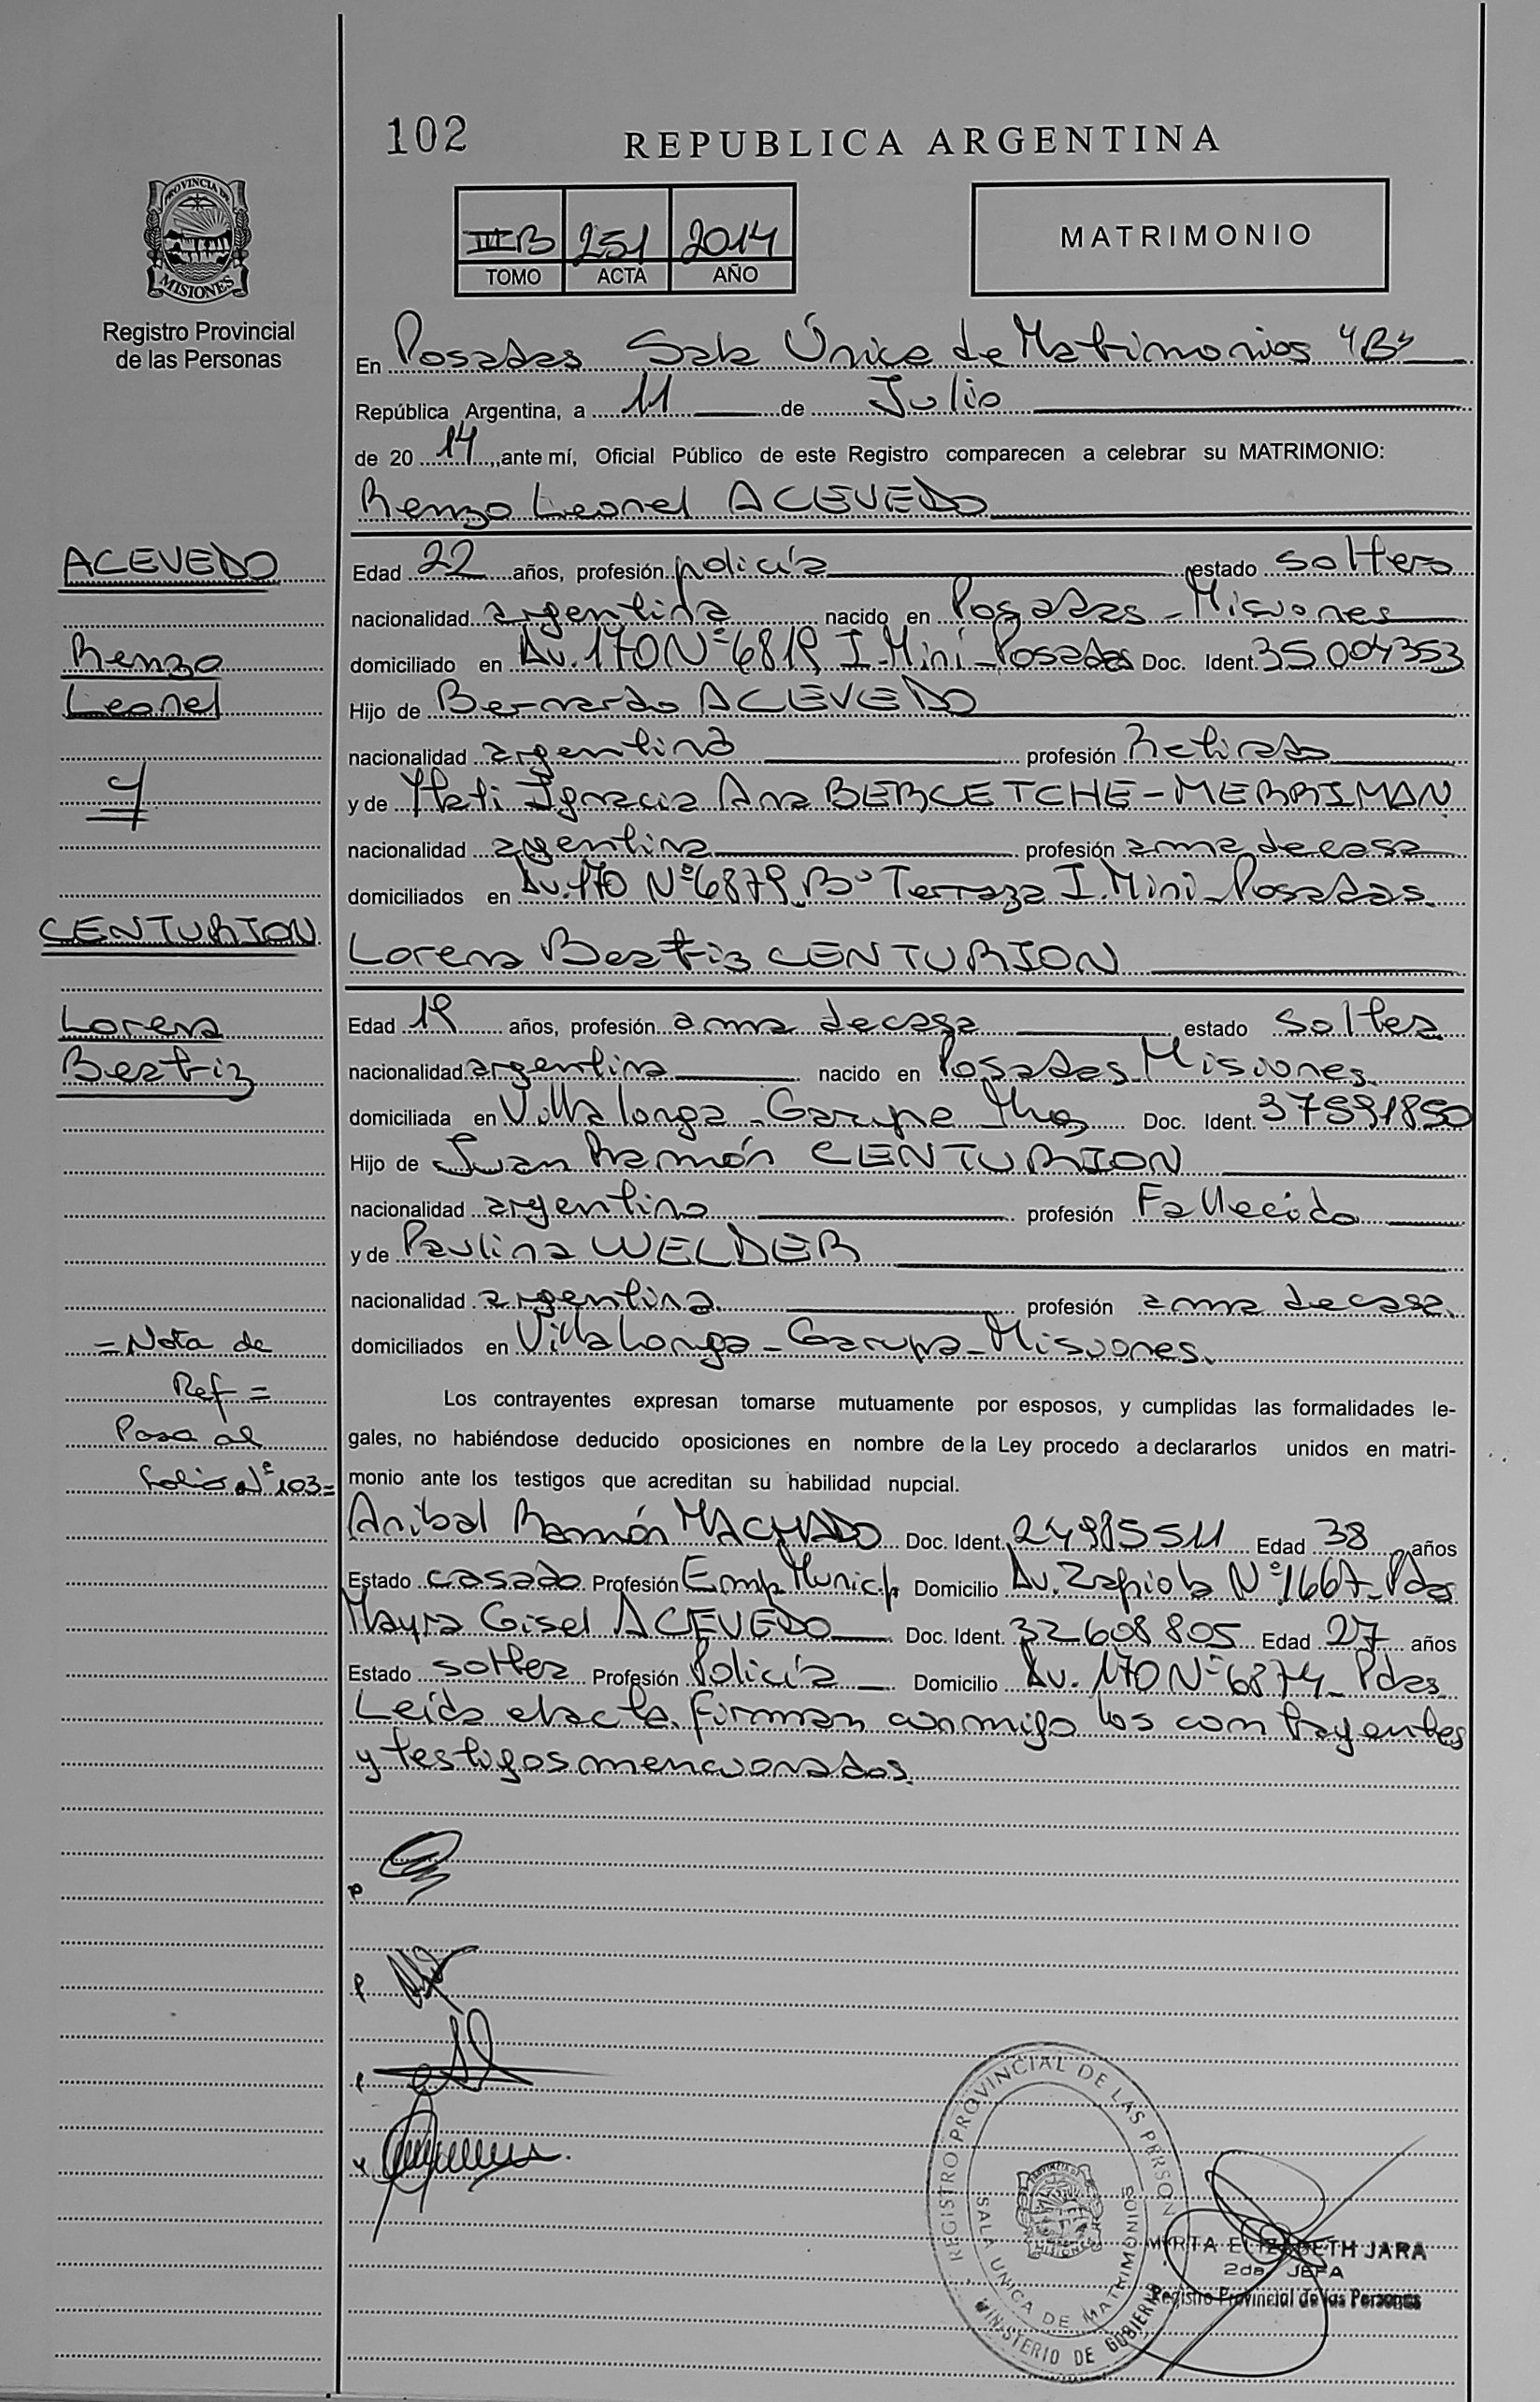 102
REPUBLICA ARGENTINA
PROVINCIA DE
MISIONES
Registro Provincial
de las Personas
III B 251 2014
TOMO ACTA AÑO
MATRIMONIO
En Posadas Sala Única de Matrimonios "B"
República Argentina, a 11 de Julio
de 20 14, ante mí, Oficial Público de este Registro comparecen a celebrar su MATRIMONIO:
Renzo Leonel ACEVEDO
ACEVEDO
Renzo
Leonel
y
CENTURION
Lorena
Beatriz
Edad 22 años, profesión policía estado soltero
nacionalidad argentina nacido en Posadas - Misiones
domiciliado en Av. 170 Nº 6819 I. Miní - Posadas Doc. Ident. 35.004353
Hijo de Bernardo ACEVEDO
nacionalidad argentina profesión Retirado
y de Itatí Ignacia Ana BERCETCHE-MERRIMAN
nacionalidad argentina profesión ama de casa
domiciliados en Av. 170 Nº 6879 Bº Terraza I. Miní - Posadas.
Lorena Beatriz CENTURION
Edad 19 años, profesión ama de casa estado soltera
nacionalidad argentina nacido en Posadas Misiones
domiciliada en Villa longa - Garupa Mnes Doc. Ident. 37591850
Hijo de Juan Ramón CENTURION
nacionalidad argentina profesión Fallecido
y de Paulina WELDER
nacionalidad argentina profesión ama de casa.
domiciliados en Villa Longa - Garupa - Misiones.
=Nota de
Ref=
Pasa al
folio Nº 103=
Los contrayentes expresan tomarse mutuamente por esposos, y cumplidas las formalidades le-
gales, no habiéndose deducido oposiciones en nombre de la Ley procedo a declararlos unidos en matri-
monio ante los testigos que acreditan su habilidad nupcial.
Anibal Ramón MACHADO Doc. Ident. 24985511 Edad 38 años
Estado casado Profesión Emp. Municip Domicilio Av. Zapiola Nº 1667 - Pdas
Mayra Gisel ACEVEDO Doc. Ident. 32.608.805 Edad 27 años
Estado soltera Profesión Policía Domicilio Av. 170 Nº 6874 - Pdas
Leída el acta, firman conmigo los contrayentes
y testigos mencionados.
REGISTRO PROVINCIAL DE LAS PERSON
SALA UNICA DE MATRIMONIOS
MINISTERIO DE GOBIERNO
MIRTA ELIZABETH JARA
2da. JEFA
Registro Provincial de las Personas